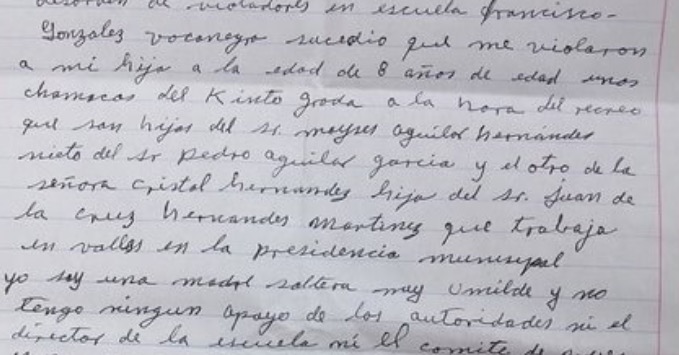 desorden de violadores en escuela francisco-
Gonzalez vocanegra sucedio que me violaron
a mi hija a la edad de 8 años de edad unos
chamacos del Kinto grado a la hora del recreo
que son hijos del sr. moyses aguilar hernandes
nieto del sr pedro aguilar garcia y el otro de la
señora cristal hernandes hija del sr. juan de
la cruz hernandes martinez que trabaja
en valles en la presidencia munisipal
yo soy una madre soltera muy Umilde y no
tengo ningun apoyo de las autoridades ni el
director de la escuela ni el comite de